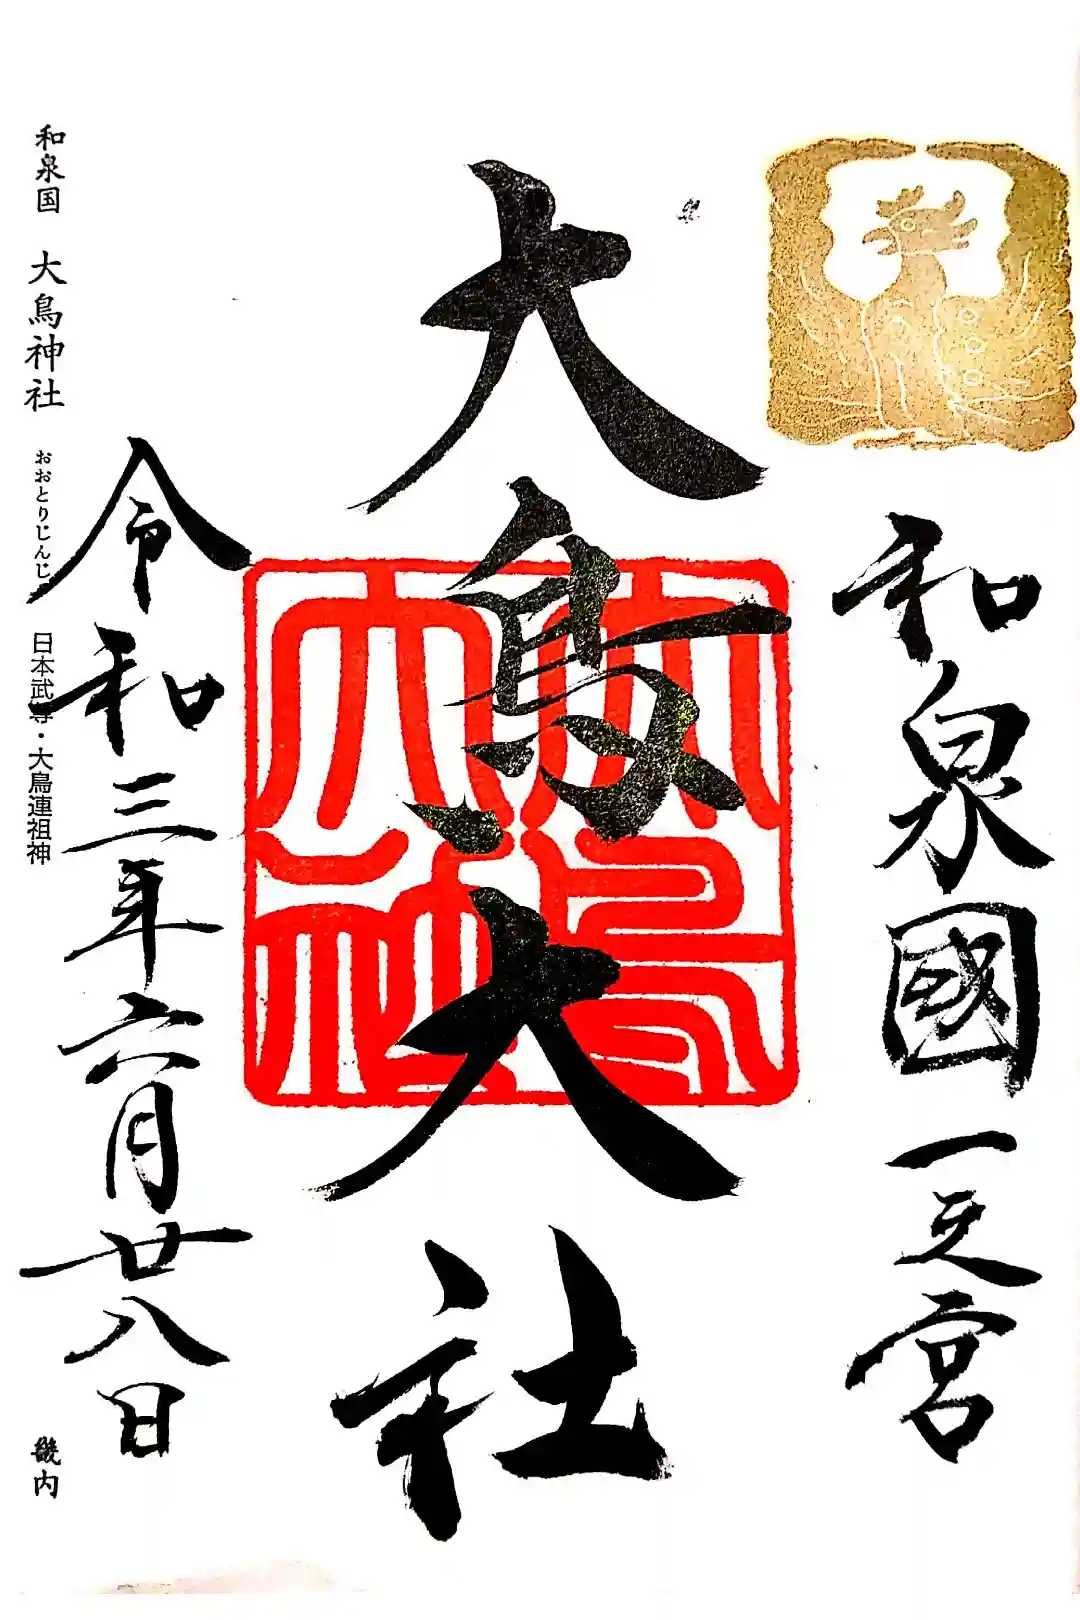 和泉國一之宮
大鳥大社
大鳥大社
令和三年六月廿八日
和泉国 大鳥神社 おおとりじんじゃ 日本武尊・大鳥連祖神 畿内